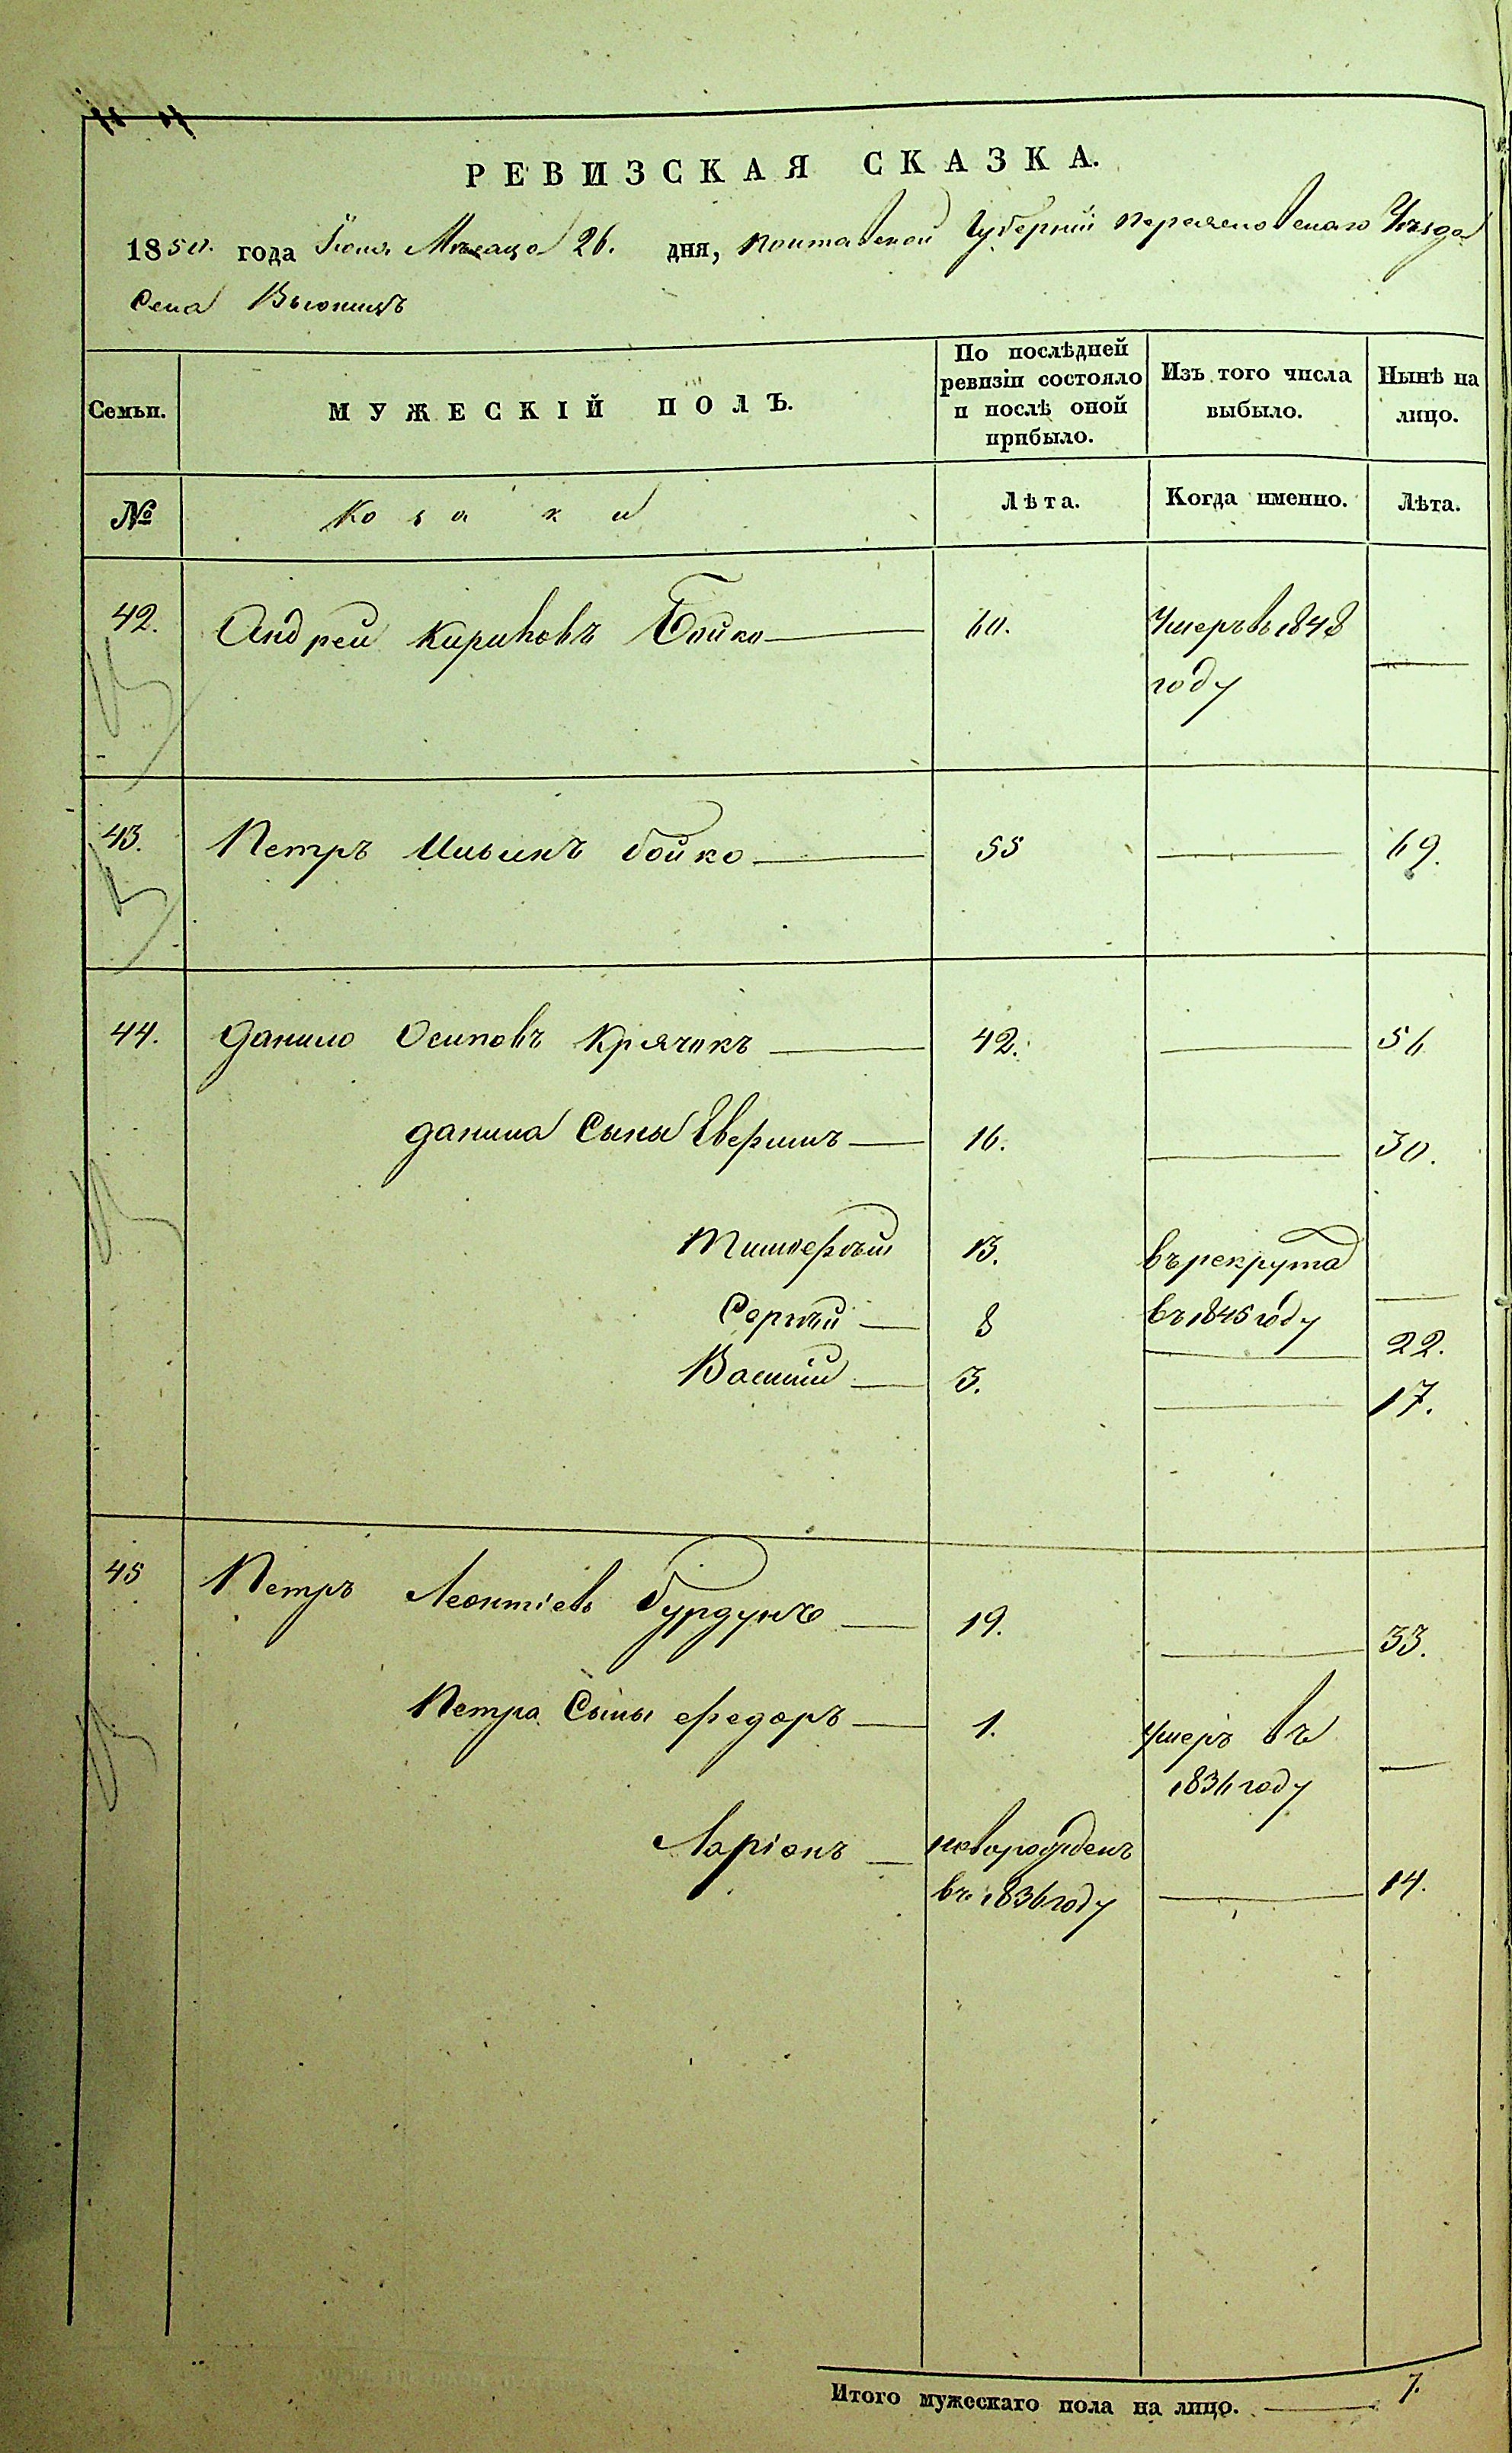 РЕВИЗСКАЯ СКАЗКА.
1850. года Іюня Мѣсяца 26. дня, Полтавской Губерніи Переясловскаго Уѣзда
Села Вьюнищъ
Семьи.
МУЖЕСКІЙ ПОЛЪ.
По послѣдней ревизіи состояло и послѣ оной прибыло.
Изъ того числа выбыло.
Нынѣ на лицо.
№
Козаки
Лѣта.
Когда именно.
Лѣта.
42. Андрей Кириловъ Бойко — 60. Умеръ в 1848 году —
43. Петръ Ильинъ бойко — 55 — 69.
44. Данило Осиповъ Крячокъ — 42. — 56
Данила Сыны — 16. — 30.
Тимофѣй 13. въ рекрута въ 1845 году —
Сергѣй — 8 — 22.
Василій — 3. — 17.
45 Петръ Леонтіевъ бурдунъ — 19. — 33.
Петра Сыны федоръ — 1. умеръ въ 1836 году —
Ларіонъ — новорожденъ въ 1836 году — 14.
Итого мужескаго пола на лицо. — 7.